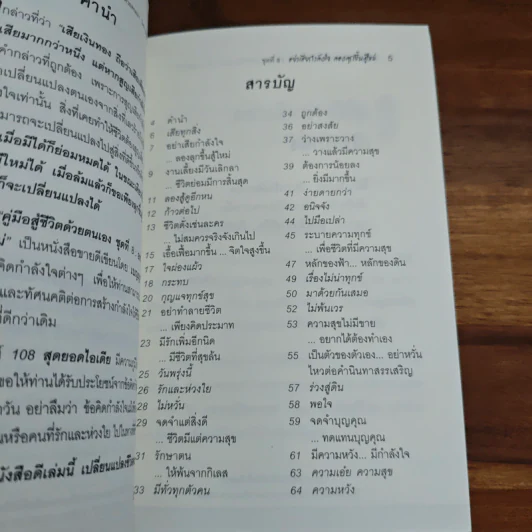 คำนำ
กล่าวที่ว่า "เสียเงินทอง ถือว่าเสีย
เสียมากกว่าหนึ่ง แต่หากสูญเสีย
คำกล่าวที่ถูกต้อง เพราะการสูญ
เปลี่ยนแปลงตนเองจากสิ่งที่
ใจเท่านั้น สิ่งที่เคยทำให้ชีวิต
มารถจะเปลี่ยนแปลงไปสู่สิ่งที่
เมื่อมีได้ก็ย่อมหมดได้ ในขณะ
ใหม่ได้ เมื่อล้มแล้วก็ขอเพียง
ก็จะเปลี่ยนแปลงได้
"คู่มือสู้ชีวิตด้วยตนเอง ชุดที่
" เป็นหนังสือขายดีเขียนโดย
คิดกำลังใจต่างๆ เพื่อให้ท่าน
และทัศนคติต่อการสร้างกำลังใจ
ที่ดีกว่าเดิม
108 สุดยอดไอเดีย มีความ
ขอให้ท่านได้รับประโยชน์จาก
วัน อย่าลืมว่า ข้อคิดกำลังใจ
นหรือคนที่รักและห่วงใย ไปใน
นังสือดีเล่มนี้ เปลี่ยนแปลง
5
สารบัญ
4 คำนำ
6 เสียทุกสิ่ง
7 อย่าเสียกำลังใจ
... ลองลุกขึ้นสู้ใหม่
9 งานเลี้ยงมีวันเลิกลา
... ชีวิตย่อมมีการสิ้นสุด
11 ลองสู้ดูอีกหน
12 ก้าวต่อไป
13 ชีวิตดั่งเช่นละคร
... ไม่สมควรจริงจังเกินไป
15 เอื้อเฟื้อมากขึ้น ... จิตใจสูงขึ้น
17 ใจผ่องแผ้ว
18 กระทบ
20 กุญแจทุกข์สุข
21 อย่าทำลายชีวิต
... เพียงคิดประมาท
23 มีรักเพิ่มอีกนิด
... มีชีวิตที่สุขล้น
25 วันพรุ่งนี้
26 รักและห่วงใย
28 ไม่หวั่น
29 จดจำแต่สิ่งดี
... ชีวิตมีแต่ความสุข
31 รักษาตน
... ให้พ้นจากกิเลส
33 มีทั่วทุกตัวคน
34 ถูกต้อง
36 อย่าสงสัย
37 ว่างเพราะวาง
... วางแล้วมีความสุข
39 ต้องการน้อยลง
... ยิ่งมีมากขึ้น
41 ง่ายดายกว่า
42 อนิจจัง
44 ไปมือเปล่า
45 ระบายความทุกข์
... เพื่อชีวิตที่มีความสุข
47 หลักของฟ้า... หลักของดิน
49 เรื่องไม่น่าทุกข์
50 มาด้วยกันเสมอ
52 ไม่พ้นเวร
53 ความสุขไม่มีขาย
... อยากได้ต้องทำเอง
55 เป็นตัวของตัวเอง... อย่าหวั่น
ไหวต่อคำนินทาสรรเสริญ
57 ร่วงสู่ดิน
58 พอใจ
59 จดจำบุญคุณ
... ทดแทนบุญคุณ
61 มีความหวัง... มีกำลังใจ
63 ความเอ๋ย ความสุข
64 ความหวัง